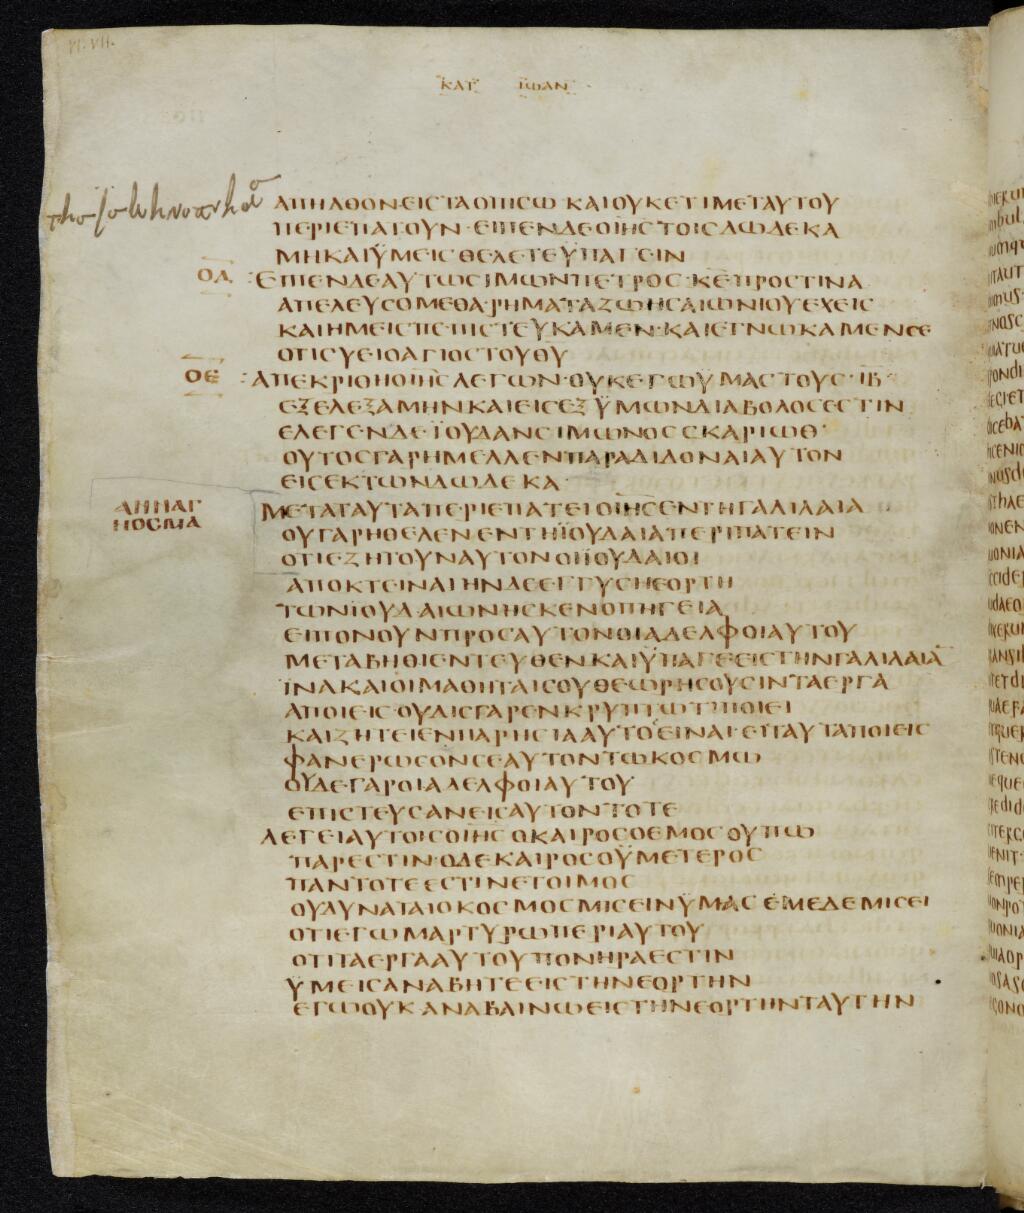 VI. VII.
ΚΑΤ ΙΩΑΝ
ΑΠΗΛΘΟΝΕΙΣΤΑΟΠΙΣΩ ΚΑΙΟΥΚΕΤΙΜΕΤΑΥΤΟΥ
ΠΕΡΙΕΠΑΤΟΥΝ·ΕΙΠΕΝΔΕΟΙΗΣΤΟΙΣΔΩΔΕΚΑ
ΜΗΚΑΙΫΜΕΙΣΘΕΛΕΤΕΫΠΑΓΕΙΝ
ΟΔ :ΕΙΠΕΝΔΕΑΥΤΩΣΙΜΩΝΠΕΤΡΟΣ·ΚΕΠΡΟΣΤΙΝΑ
ΑΠΕΛΕΥΣΟΜΕΘΑ·ΡΗΜΑΤΑΖΩΗΣΑΙΩΝΙΟΥΕΧΕΙΣ
ΚΑΙΗΜΕΙΣΠΕΠΙΣΤΕΥΚΑΜΕΝ·ΚΑΙΕΓΝΩΚΑΜΕΝΣΕ
ΟΤΙΣΥΕΙΟΑΓΙΟΣΤΟΥΘΥ
ΟΕ :ΑΠΕΚΡΙΘΗΟΙΗΣΛΕΓΩΝ·ΟΥΚΕΓΩΫΜΑΣΤΟΥΣ·ΙΒ·
ΕΞΕΛΕΞΑΜΗΝΚΑΙΕΙΣΕΞΫΜΩΝΔΙΑΒΟΛΟΣΕΣΤΙΝ
ΕΛΕΓΕΝΔΕΪΟΥΔΑΝΣΙΜΩΝΟΣΣΚΑΡΙΩΘ·
ΟΥΤΟΣΓΑΡΗΜΕΛΛΕΝΠΑΡΑΔΙΔΟΝΑΙΑΥΤΟΝ
ΕΙΣΕΚΤΩΝΔΩΔΕΚΑ·
ΑΝΝΑΓ
ΝΟΣΜΑ
ΜΕΤΑΤΑΥΤΑΠΕΡΙΕΠΑΤΕΙΟΙΗΣΕΝΤΗΓΑΛΙΛΑΙΑ
ΟΥΓΑΡΗΘΕΛΕΝΕΝΤΗΪΟΥΔΑΙΑΠΕΡΙΠΑΤΕΙΝ
ΟΤΙΕΖΗΤΟΥΝΑΥΤΟΝΟΙΪΟΥΔΑΙΟΙ
ΑΠΟΚΤΕΙΝΑΙΗΝΔΕΕΓΓΥΣΗΕΟΡΤΗ
ΤΩΝΪΟΥΔΑΙΩΝΗΣΚΕΝΟΠΗΓΕΙΑ
ΕΙΠΟΝΟΥΝΠΡΟΣΑΥΤΟΝΟΙΑΔΕΛΦΟΙΑΥΤΟΥ
ΜΕΤΑΒΗΘΙΕΝΤΕΥΘΕΝΚΑΙΫΠΑΓΕΕΙΣΤΗΝΓΑΛΙΛΑΙΑ̅
ΪΝΑΚΑΙΟΙΜΑΘΗΤΑΙΣΟΥΘΕΩΡΗΣΟΥΣΙΝΤΑΕΡΓΑ
ΑΠΟΙΕΙΣ·ΟΥΔΙΣΓΑΡΕΝΚΡΥΠΤΩΤΙΠΟΙΕΙ
ΚΑΙΖΗΤΕΙΕΝΠΑΡΗΣΙΑΑΥΤΟΕΙΝΑΙ·ΕΙΤΑΥΤΑΠΟΙΕΙΣ
ΦΑΝΕΡΩΣΟΝΣΕΑΥΤΟΝΤΩΚΟΣΜΩ
ΟΥΔΕΓΑΡΟΙΑΔΕΛΦΟΙΑΥΤΟΥ
ΕΠΙΣΤΕΥΣΑΝΕΙΣΑΥΤΟΝΤΟΤΕ
ΛΕΓΕΙΑΥΤΟΙΣΟΙΗΣ ΟΚΑΙΡΟΣΟΕΜΟΣΟΥΠΩ
ΠΑΡΕΣΤΙΝ·ΟΔΕΚΑΙΡΟΣΟΫΜΕΤΕΡΟΣ
ΠΑΝΤΟΤΕΕΣΤΙΝΕΤΟΙΜΟΣ
ΟΥΔΥΝΑΤΑΙΟΚΟΣΜΟΣΜΙΣΕΙΝΫΜΑΣ ΕΜΕΔΕΜΙΣΕΙ
ΟΤΙΕΓΩΜΑΡΤΥΡΩΠΕΡΙΑΥΤΟΥ
ΟΤΙΤΑΕΡΓΑΑΥΤΟΥΠΟΝΗΡΑΕΣΤΙΝ
ΫΜΕΙΣΑΝΑΒΗΤΕΕΙΣΤΗΝΕΟΡΤΗΝ
ΕΓΩΟΥΚΑΝΑΒΑΙΝΩΕΙΣΤΗΝΕΟΡΤΗΝΤΑΥΤΗΝ